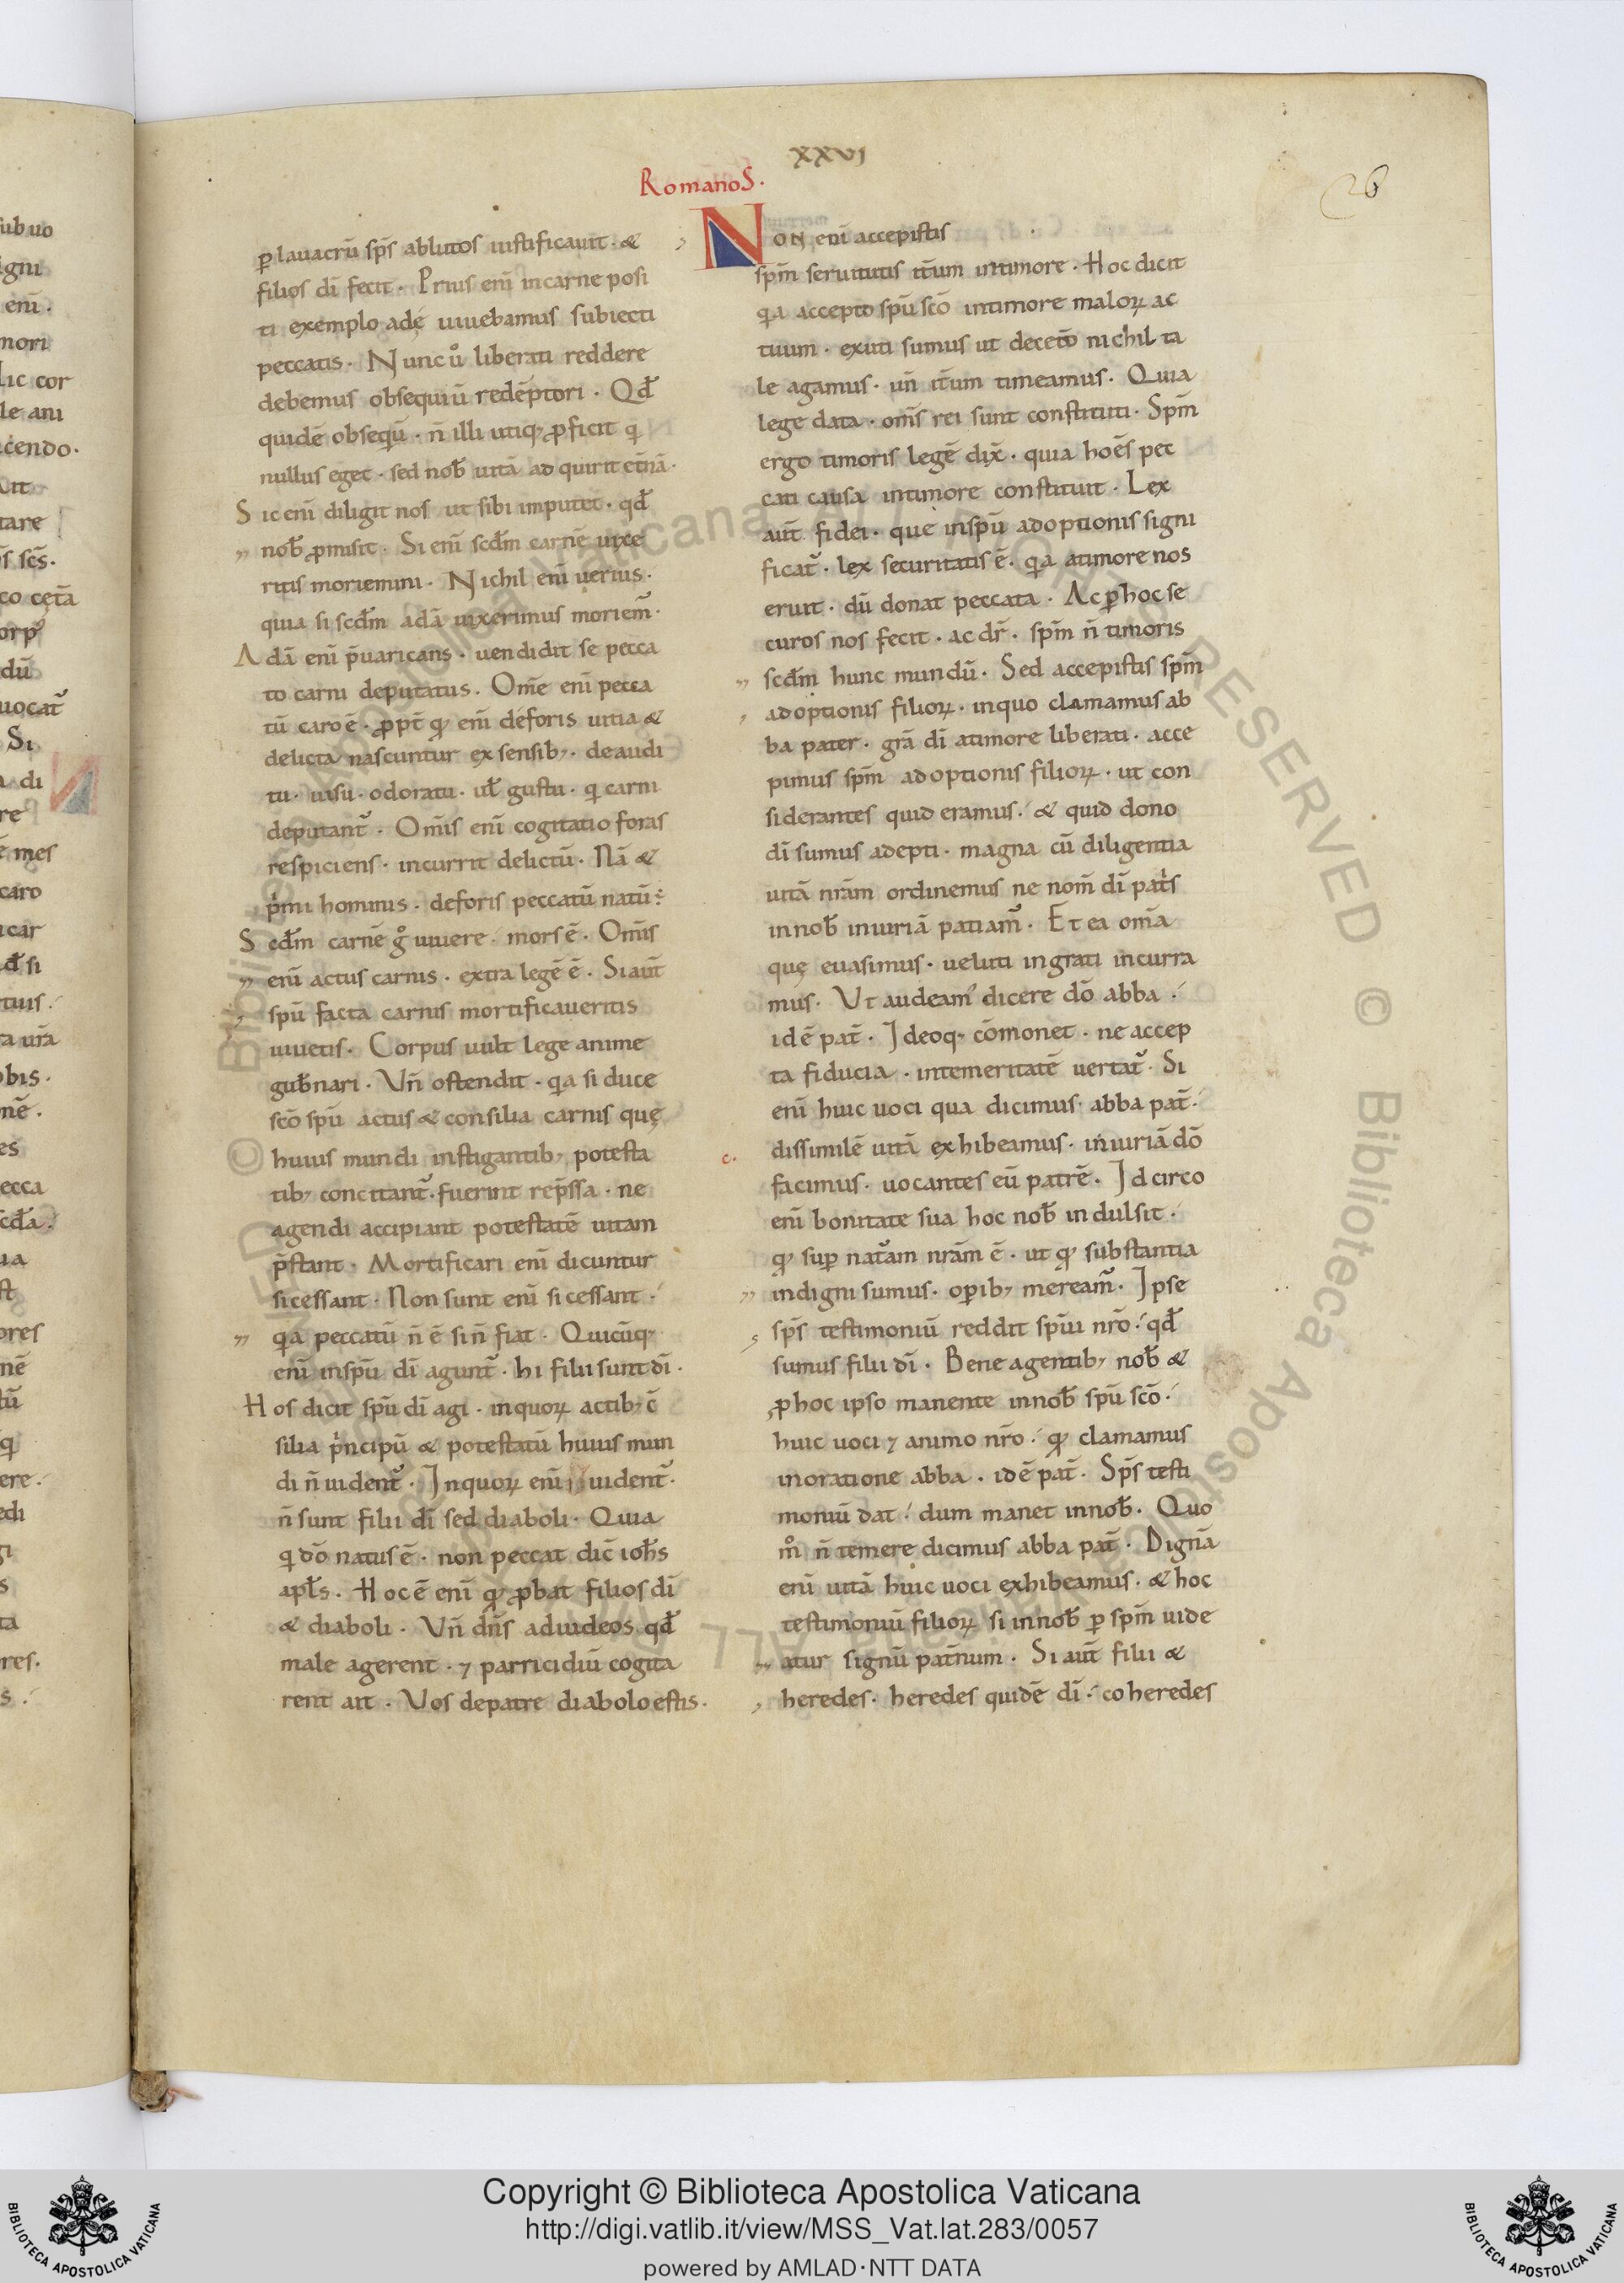 xxvi
Romanos.
26
ꝑ lauacrū sp̄s ablutos iustificauit · &
filios dī fecit · Prius enī incarne posi
ti exemplo adę uiuebamus subiecti
peccatis · Nunc ů liberati reddere
debemus obsequiū redēptori · Qđ
quidē obsequiū · n̄ illi utiq; ꝓficit q̇
nullus eget · sed nob̄ uitā adquirit etn̄ā ·
Sic enī diligit nos ut sibi imputet · qđ
nob̄ ꝓmisit · Si enī scđm carnē uixe
ritis moriemini · Nichil enī uerius ·
quia si scđm adā uixerimus moriem̄ ·
Adā enī p̄uaricans · uendidit se pecca
to carni deputatus. Om̄e enī pecca
tū caro ē · ꝓpt̄ qđ enī deforis uitia &
delicta nascuntur ex sensib; · de audi
tu · uisu · odoratu · ul̄ gustu · q̇ carni
deputant̄ · Om̄is enī cogitatio foras
respiciens · incurrit delictū · Nā &
p̓mi hominis · deforis peccatū natū :·
Scđm carnē g̊ uiuere · mors ē · Om̄is
enī actus carnis · extra legē ē · Si aūt
spū facta carnis mortificaueritis
uiuetis · Corpus uult lege anime
gub̄nari · Vn̄ ostendit · q̇a si duce
sc̄o spū actus & consilia carnis quę
huius mundi instigantib; potesta
tib; concitant̄ · fuerint rep̄ssa · ne
agendi accipiant potestatē uitam
p̄stant · Mortificari enī dicuntur
si cessant · Non sunt enī si cessant ·
q̇a peccatū n̄ ē si n̄ fiat · Quicūq;
enī inspū dī agunt̄ · hi filii sunt dī ·
Hos dicit spū dī agi · inquoꝝ actib; c̄
silia p̓ncipū & potestatū huius mun
di n̄ uident̄ · Inquoꝝ enī uident̄ ·
n̄ sunt filii dī sed diaboli · Quia
q̇ dō natus ē · non peccat dic̄ ioh̄s
apl̄s . Hoc ē enī qđ ꝓbat filios dī
& diaboli · Vn̄ dn̄s adiudeos qđ
male agerent · ⁊ parricidiū cogita
rent ait · Vos depatre diabolo estis ·
Non enī accepistis
sp̄m seruitutis it̄um intimore · Hoc dicit
q̇a accepto spū sc̄o intimore maloꝝ ac
tuum · exuti sumus ut deceto nichil ta
le agamus · un̄ it̄um timeamus · Quia
lege data · om̄s rei sunt constituti · Sp̄m
ergo timoris legē dix̄ · quia hoēs pec
cati causa intimore constituit · Lex
aūt fidei · que inspū adoptionis signi
ficat̄ · lex securitatis ē · q̇a atimore nos
eruit · dū donat peccata · Ac ꝑ hoc se
curos nos fecit · ac dr̄ · sp̄m n̄ timoris
scđm hunc mundū · Sed accepistis sp̄m
adoptionis filioꝝ · inquo clamamus ab
ba pater · grā dī atimore liberati · acce
pimus sp̄m adoptionis filioꝝ · ut con
siderantes quid eramus · & quid dono
dī sumus adepti · magna cū diligentia
uitā nrām ordinemus ne nom̄ dī pat̓s
innob̄ iniuriā patiam̄ · Et ea om̄a
quę euasimus · ueluti ingrati incurra
mus · Vt audeam̓ dicere dō abba ·
id ē pat̄ · Ideoq; cōmonet · ne accep
ta fiducia · intemeritatē uertat̄ · Si
enī huic uoci qua dicimus · abba pat̄ ·
dissimilē uitā exhibeamus · iniuriā dō
facimus · uocantes eū patrē · Idcirco
enī bonitate sua hoc nob̄ indulsit ·
qđ suꝑ nat̄am nrām ē · ut qđ substantia
indigni sumus · oꝑib; meream̄ · Ipse
sp̄s testimoniū reddit spūi nr̄o · qđ
sumus filii dī · Bene agentib; nob̄ &
ꝑ hoc ipso manente innob̄ spū sc̄o ·
huic uoci ⁊ animo nr̄o · qđ clamamus
inoratione abba · id ē pat̄ · Sp̄s testi
moniū dat · dum manet innob̄ · Quo
m̊ n̄ temere dicimus abba pat̄ · Dignā
enī uitā huic uoci exhibeamus · & hoc
testimoniū filioꝝ si innob̄ ꝑ sp̄m uide
atur signū pat̄num · Si aūt filii &
heredes · heredes quidē dī · coheredes
Copyright © Biblioteca Apostolica Vaticana
http://digi.vatlib.it/view/MSS_Vat.lat.283/0057
powered by AMLAD·NTT DATA
BIBLIOTECA APOSTOLICA VATICANA
BIBLIOTECA APOSTOLICA VATICANA